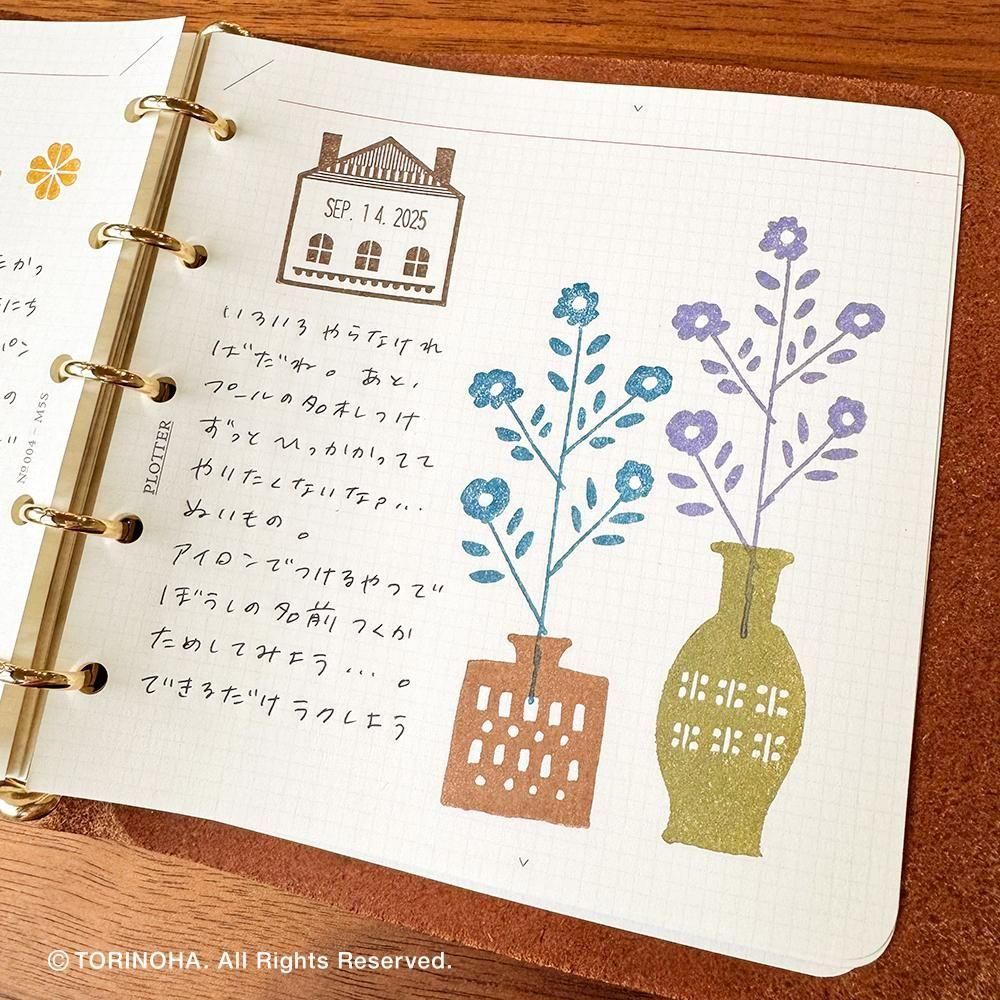 SEP. 14. 2025
いろいろ やらなけれ
ばだね。あと、
プールの名札つけ
ずっと ひっかかってて
やりたくないなぁ...
ぬいもの。
アイロンでつけるやつで
ぼうしの名前つくか
ためしてみよう...。
できるだけ ラクしよう
PLOTTER
Nº004 - M5S
© TORINOHA. All Rights Reserved.